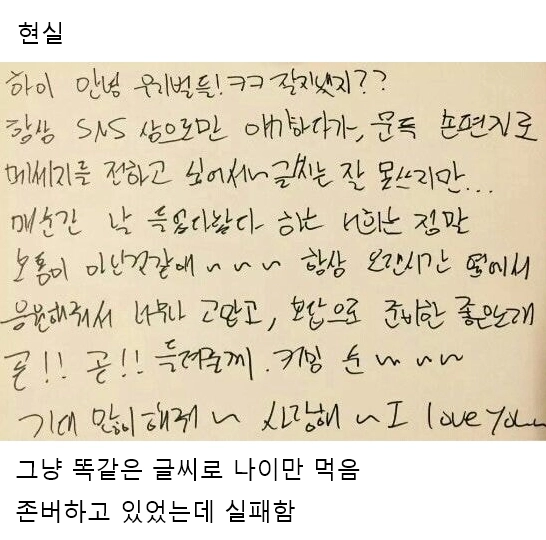 현실
하이 안녕 우리벌들! ㅋㅋ 잘지냈지??
항상 SNS 상으로만 얘기하다가, 문득 손편지로
메세지를 전하고 싶어서~ 글씨는 잘 못쓰지만...
매순간 날 들었다놨다 하는 너희는 정말
보통이 아닌것같애 ~ ~ ~ 항상 오랜시간 옆에서
응원해줘서 너무나 고맙고, 보답으로 준비한 좋은노래
곧!! 곧!! 들려줄께. 커밍 순 ~ ~ ~
기대 많이해줘 ~ 사랑해 ~ I love you~
그냥 똑같은 글씨로 나이만 먹음
존버하고 있었는데 실패함